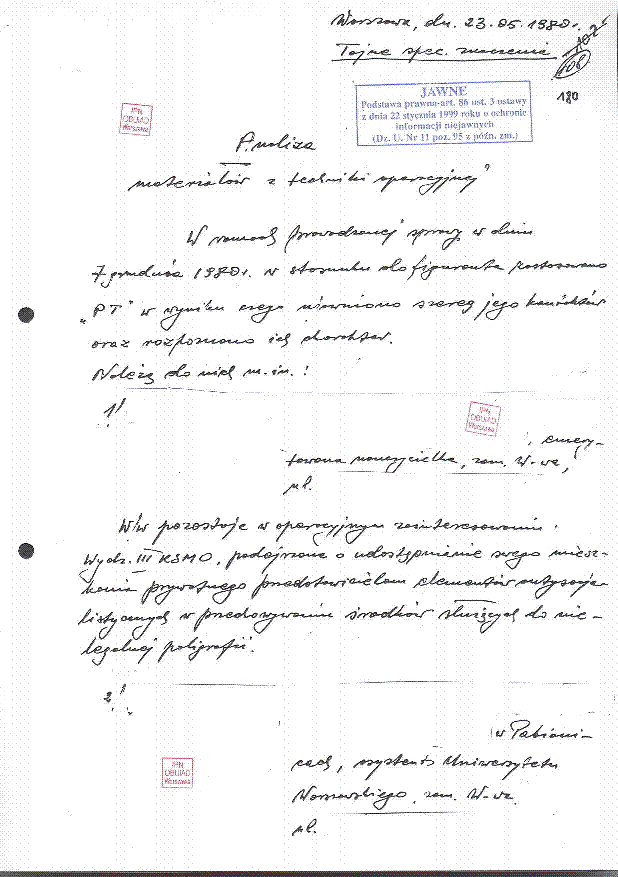 Warszawa, dn. 23.05.1980r.
Tajne spec. znaczenia
102
108
180
JAWNE
Podstawa prawna-art. 86 ust. 3 ustawy
z dnia 22 stycznia 1999 roku o ochronie
informacji niejawnych
(Dz. U. Nr 11 poz. 95 z późn. zm.)
IPN
OBUiAD
Warszawa
Analiza
materiałów z techniki operacyjnej
W ramach prowadzonej sprawy w dniu
7 grudnia 1980r. w stosunku do figuranta zastosowano
"PT" w wyniku czego ujawniono szereg jego kontaktów
oraz rozpoznano ich charakter.
Należą do nich m.in.:
1/
IPN
OBUiAD
Warszawa
, emery-
towana nauczycielka, zam. W-wa,
ul.
W/w pozostaje w operacyjnym zainteresowaniu
Wydz. III KSMO, podejrzana o udostępnianie swego miesz-
kania prywatnego przedstawicielom elementów antysocja-
listycznych w przechowywaniu środków służących do nie-
legalnej poligrafii.
2/
w Pabiani-
cach, asystent Uniwersytetu
Warszawskiego, zam. W-wa
ul.
IPN
OBUiAD
Warszawa